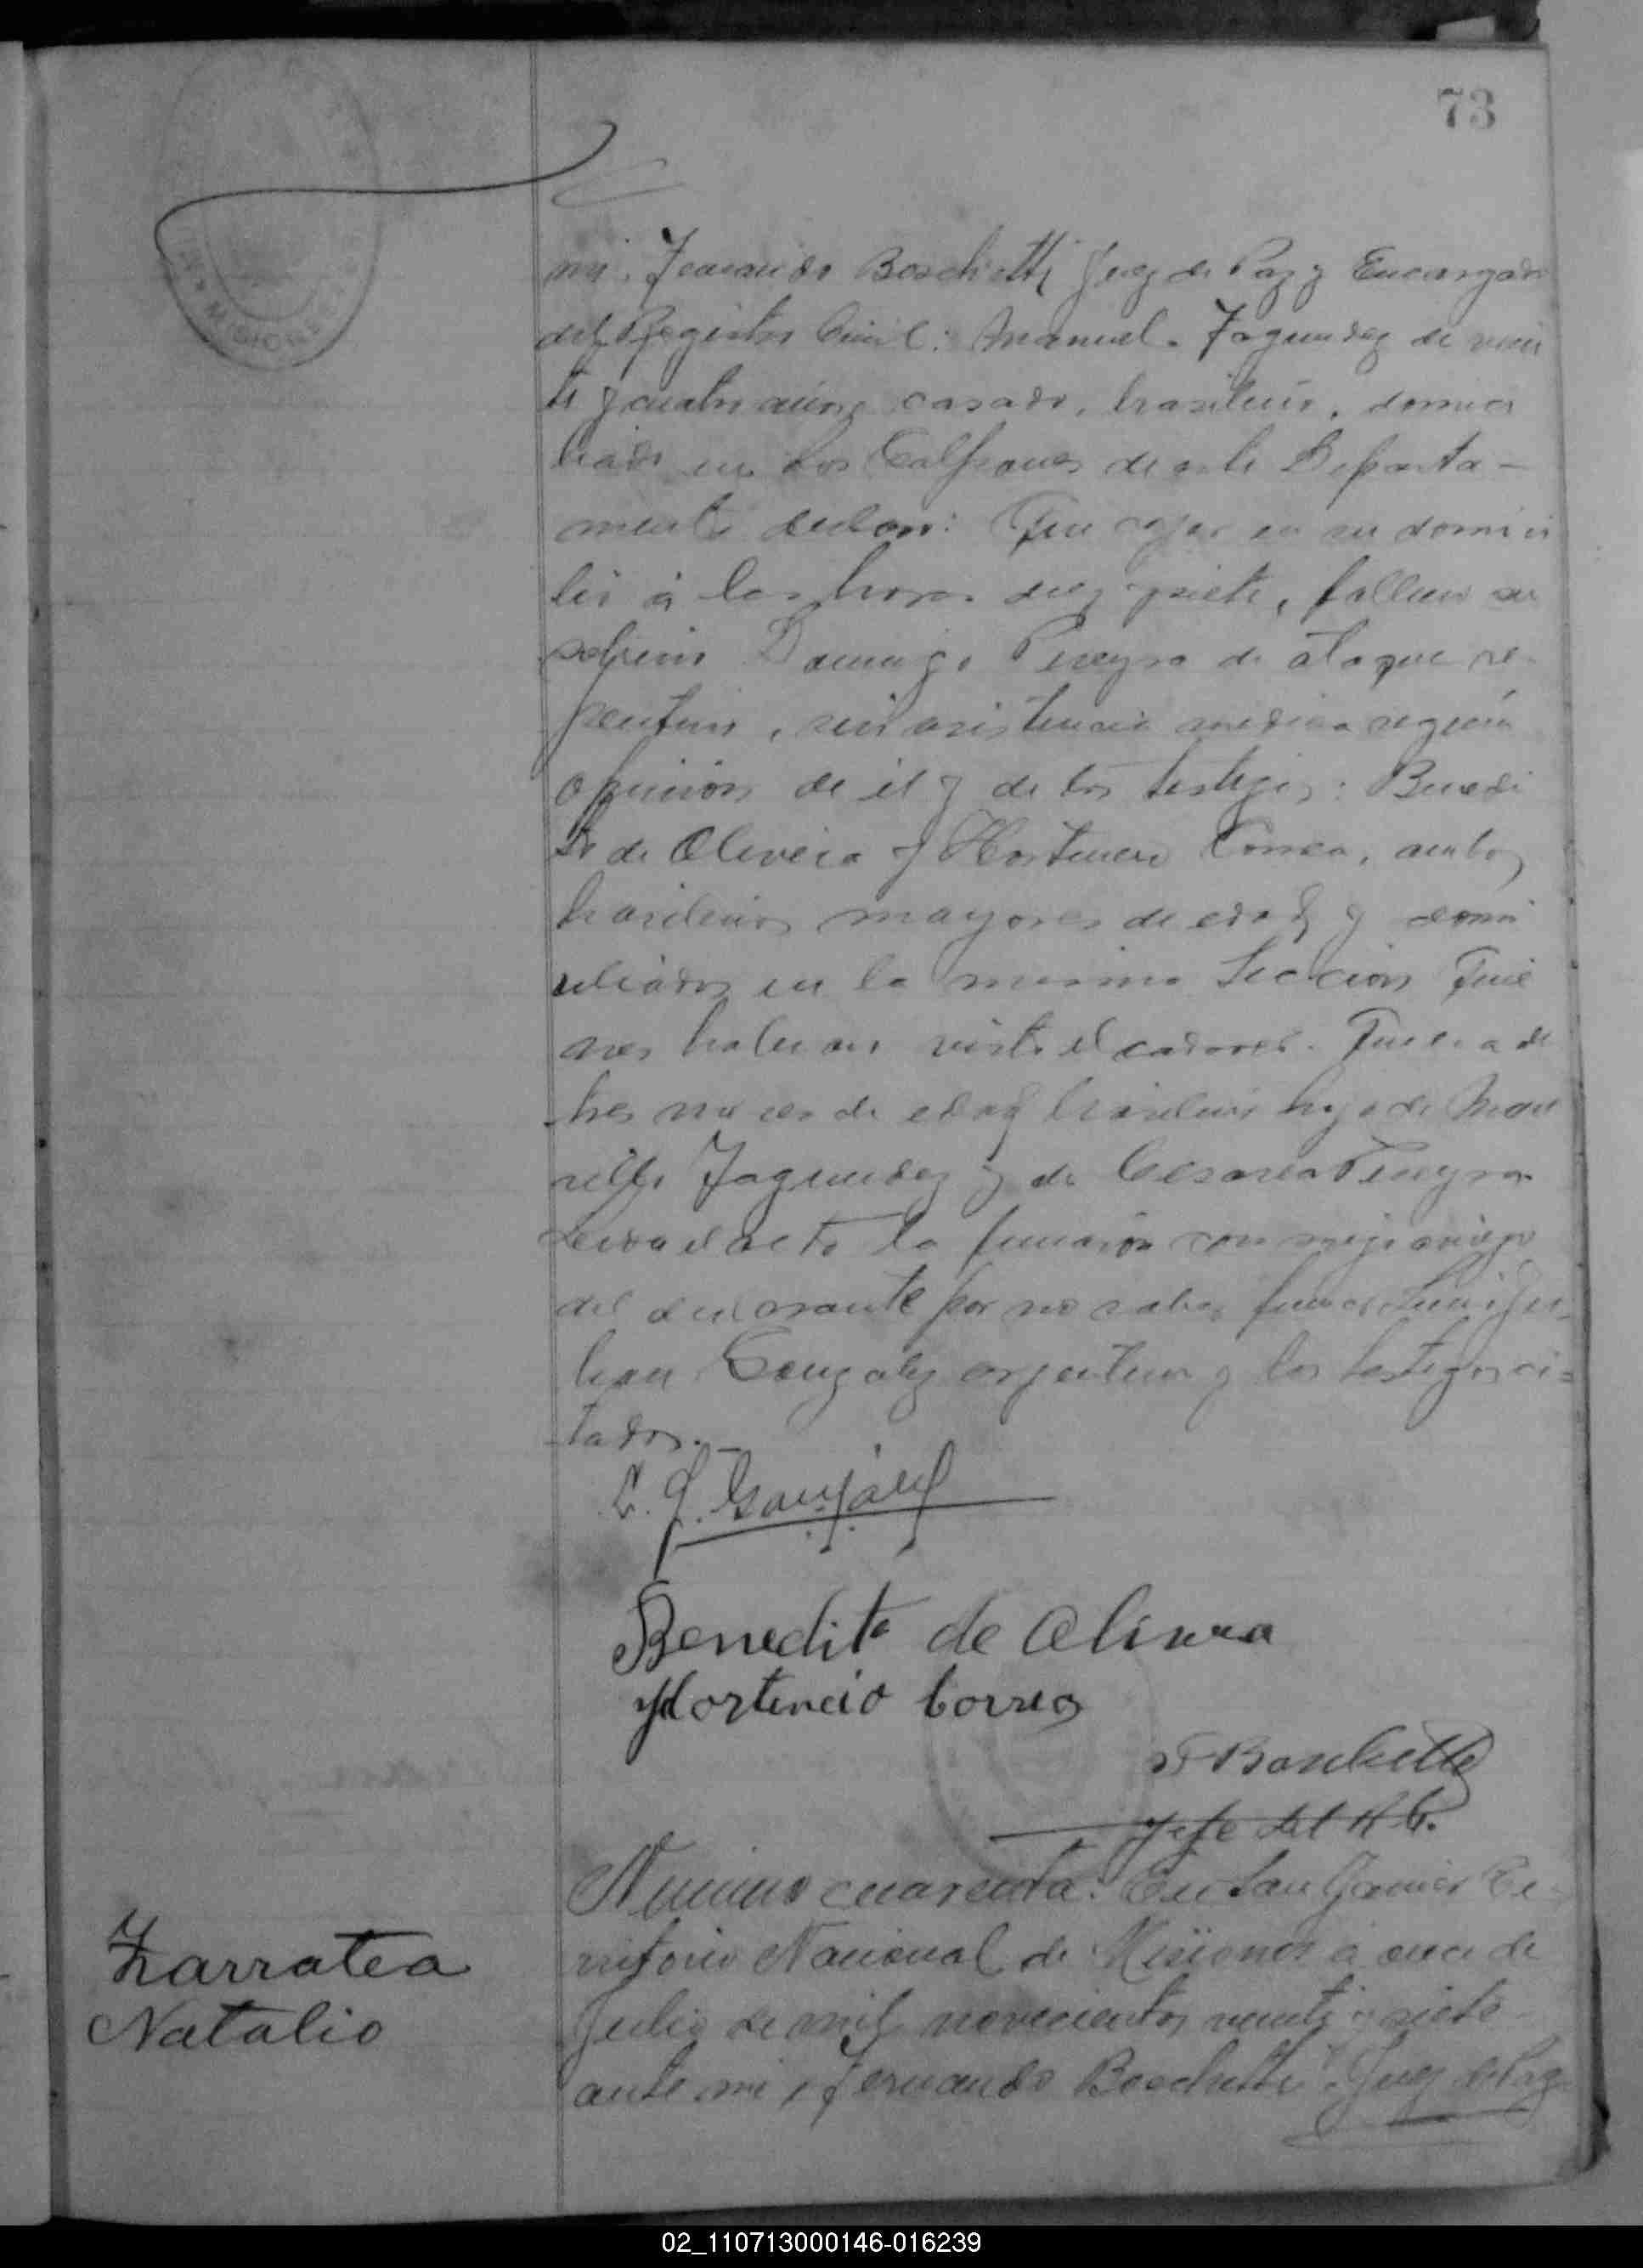 73
MISIONES
mi Fernando Boschetti Juez de Paz y Encargado
del Registro Civil: Manuel Fagundez de vein
te y cuatro años, casado, brasilero, domici
liado en Los Galpones de este Departa-
mento declaró: Que ayer en su domici
lio á las horas diez y siete, falleció su
sobrino Domingo Pereyra de ataque re-
pentino, sin asistencia medica según
opinión de él y de los testigos: Benedi
to de Olivera y Hortencio Correa, ambos
brasileros mayores de edad y domi
ciliados en la misma Sección Quie
nes habian visto el cadaver. Que era de
tres meses de edad brasilero hijo de
Fagundez y de Cesarea Pereyra
Leida el acta la firmaron con migo
del declarante por no saber firmar
lian Gonzalez argentino y los testigos ci=
tados.-
L. J. Gonzalez
Benedito de Olivera
Hortencio Correa
F Boschetti
Jefe del R. C.
Zarratea
Natalio
Número cuarenta: En San Javier Te
rritorio Nacional de Misiones á once de
Julio de mil novecientos veinte y siete
ante mi, Fernando Boschetti Juez de Paz
02_110713000146-016239